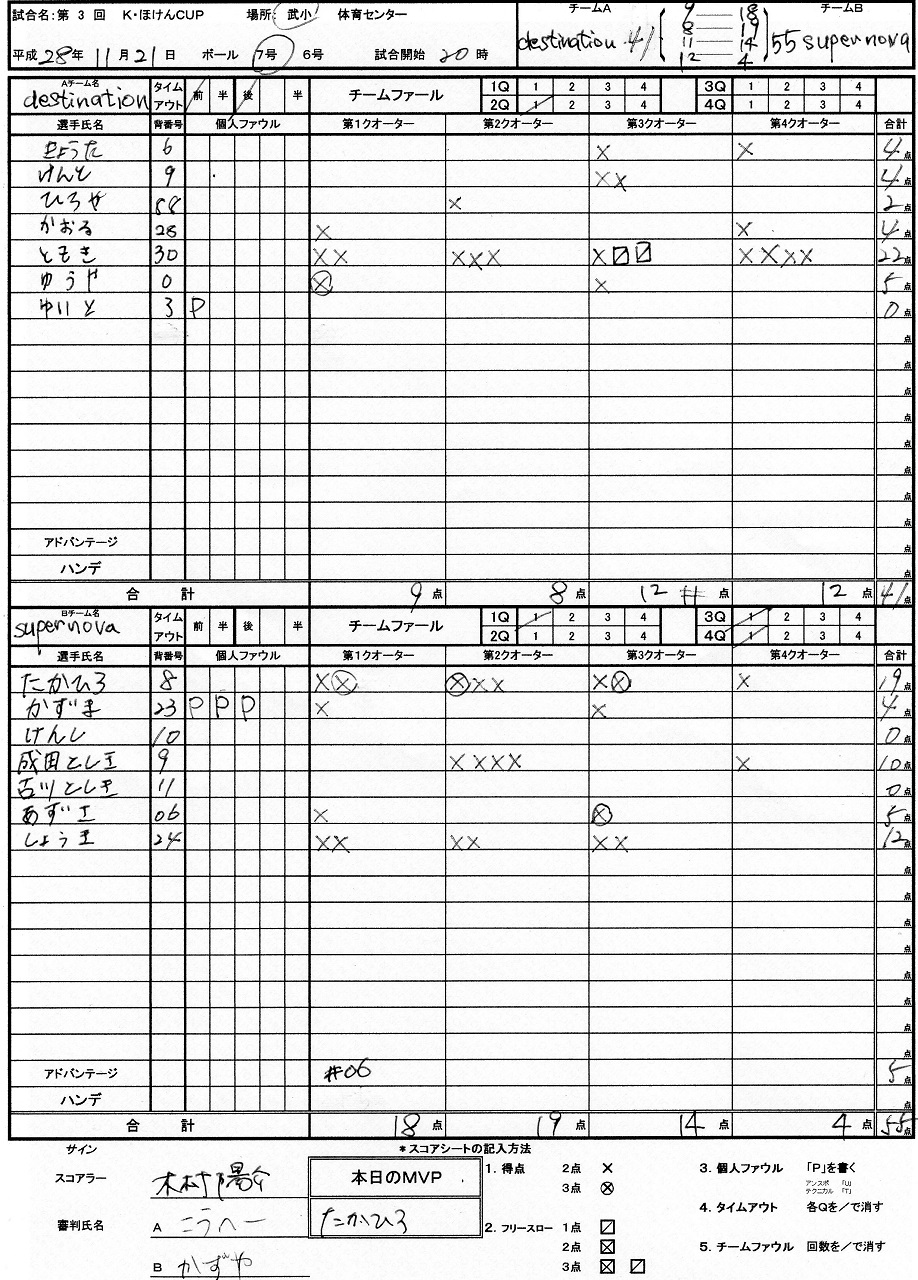 試合名:第 3 回 K・ほけんCUP 場所: 武小 体育センター
平成 28 年 11 月 21 日 ボール 7号 6号 試合開始 20 時
チームA チームB
destination 41 55 supernova
9 — 18
8 — 19
11 — 14
12 — 4
Aチーム名 destination タイムアウト 前 半 後 半 チームファール 1Q 1 2 3 4 3Q 1 2 3 4
2Q 1 2 3 4 4Q 1 2 3 4
選手氏名 背番号 個人ファウル 第1クオーター 第2クオーター 第3クオーター 第4クオーター 合計
きょうた 6 × × 4点
けんと 9 ×× 4点
ひろや 88 × 2点
かおる 28 × × 4点
ともき 30 ×× ××× × ☐ ☐ ×××× 22点
ゆうや 0 ⊗ × 5点
ゆいと 3 P 0点
点
点
点
点
点
点
点
点
アドバンテージ 点
ハンデ 点
合 計 9 点 8 点 12 点 12 点 41点
Bチーム名 supernova タイムアウト 前 半 後 半 チームファール 1Q 1 2 3 4 3Q 1 2 3 4
2Q 1 2 3 4 4Q 1 2 3 4
選手氏名 背番号 個人ファウル 第1クオーター 第2クオーター 第3クオーター 第4クオーター 合計
たかひろ 8 ×⊗ ⊗×× ×⊗ × 19点
かずま 23 P P P × × 4点
けんし 10 0点
成田としき 9 ×××× × 10点
古川としき 11 0点
あずさ 06 × ⊗ 5点
しょうき 24 ×× ×× ×× 12点
点
点
点
点
点
点
点
点
アドバンテージ #06 5点
ハンデ 点
合 計 18 点 19 点 14 点 4 点 55点
サイン
スコアラー 木村陽介
審判氏名 A こうへー
B かずや
本日のMVP
たかひろ
*スコアシートの記入方法
1. 得点 2点 ×
3点 ⊗
2. フリースロー 1点 ☐
2点 ☒
3点 ☒ ☐
3. 個人ファウル 「P」を書く
アンスポ 「U」
テクニカル 「T」
4. タイムアウト 各Qを/で消す
5. チームファウル 回数を/で消す